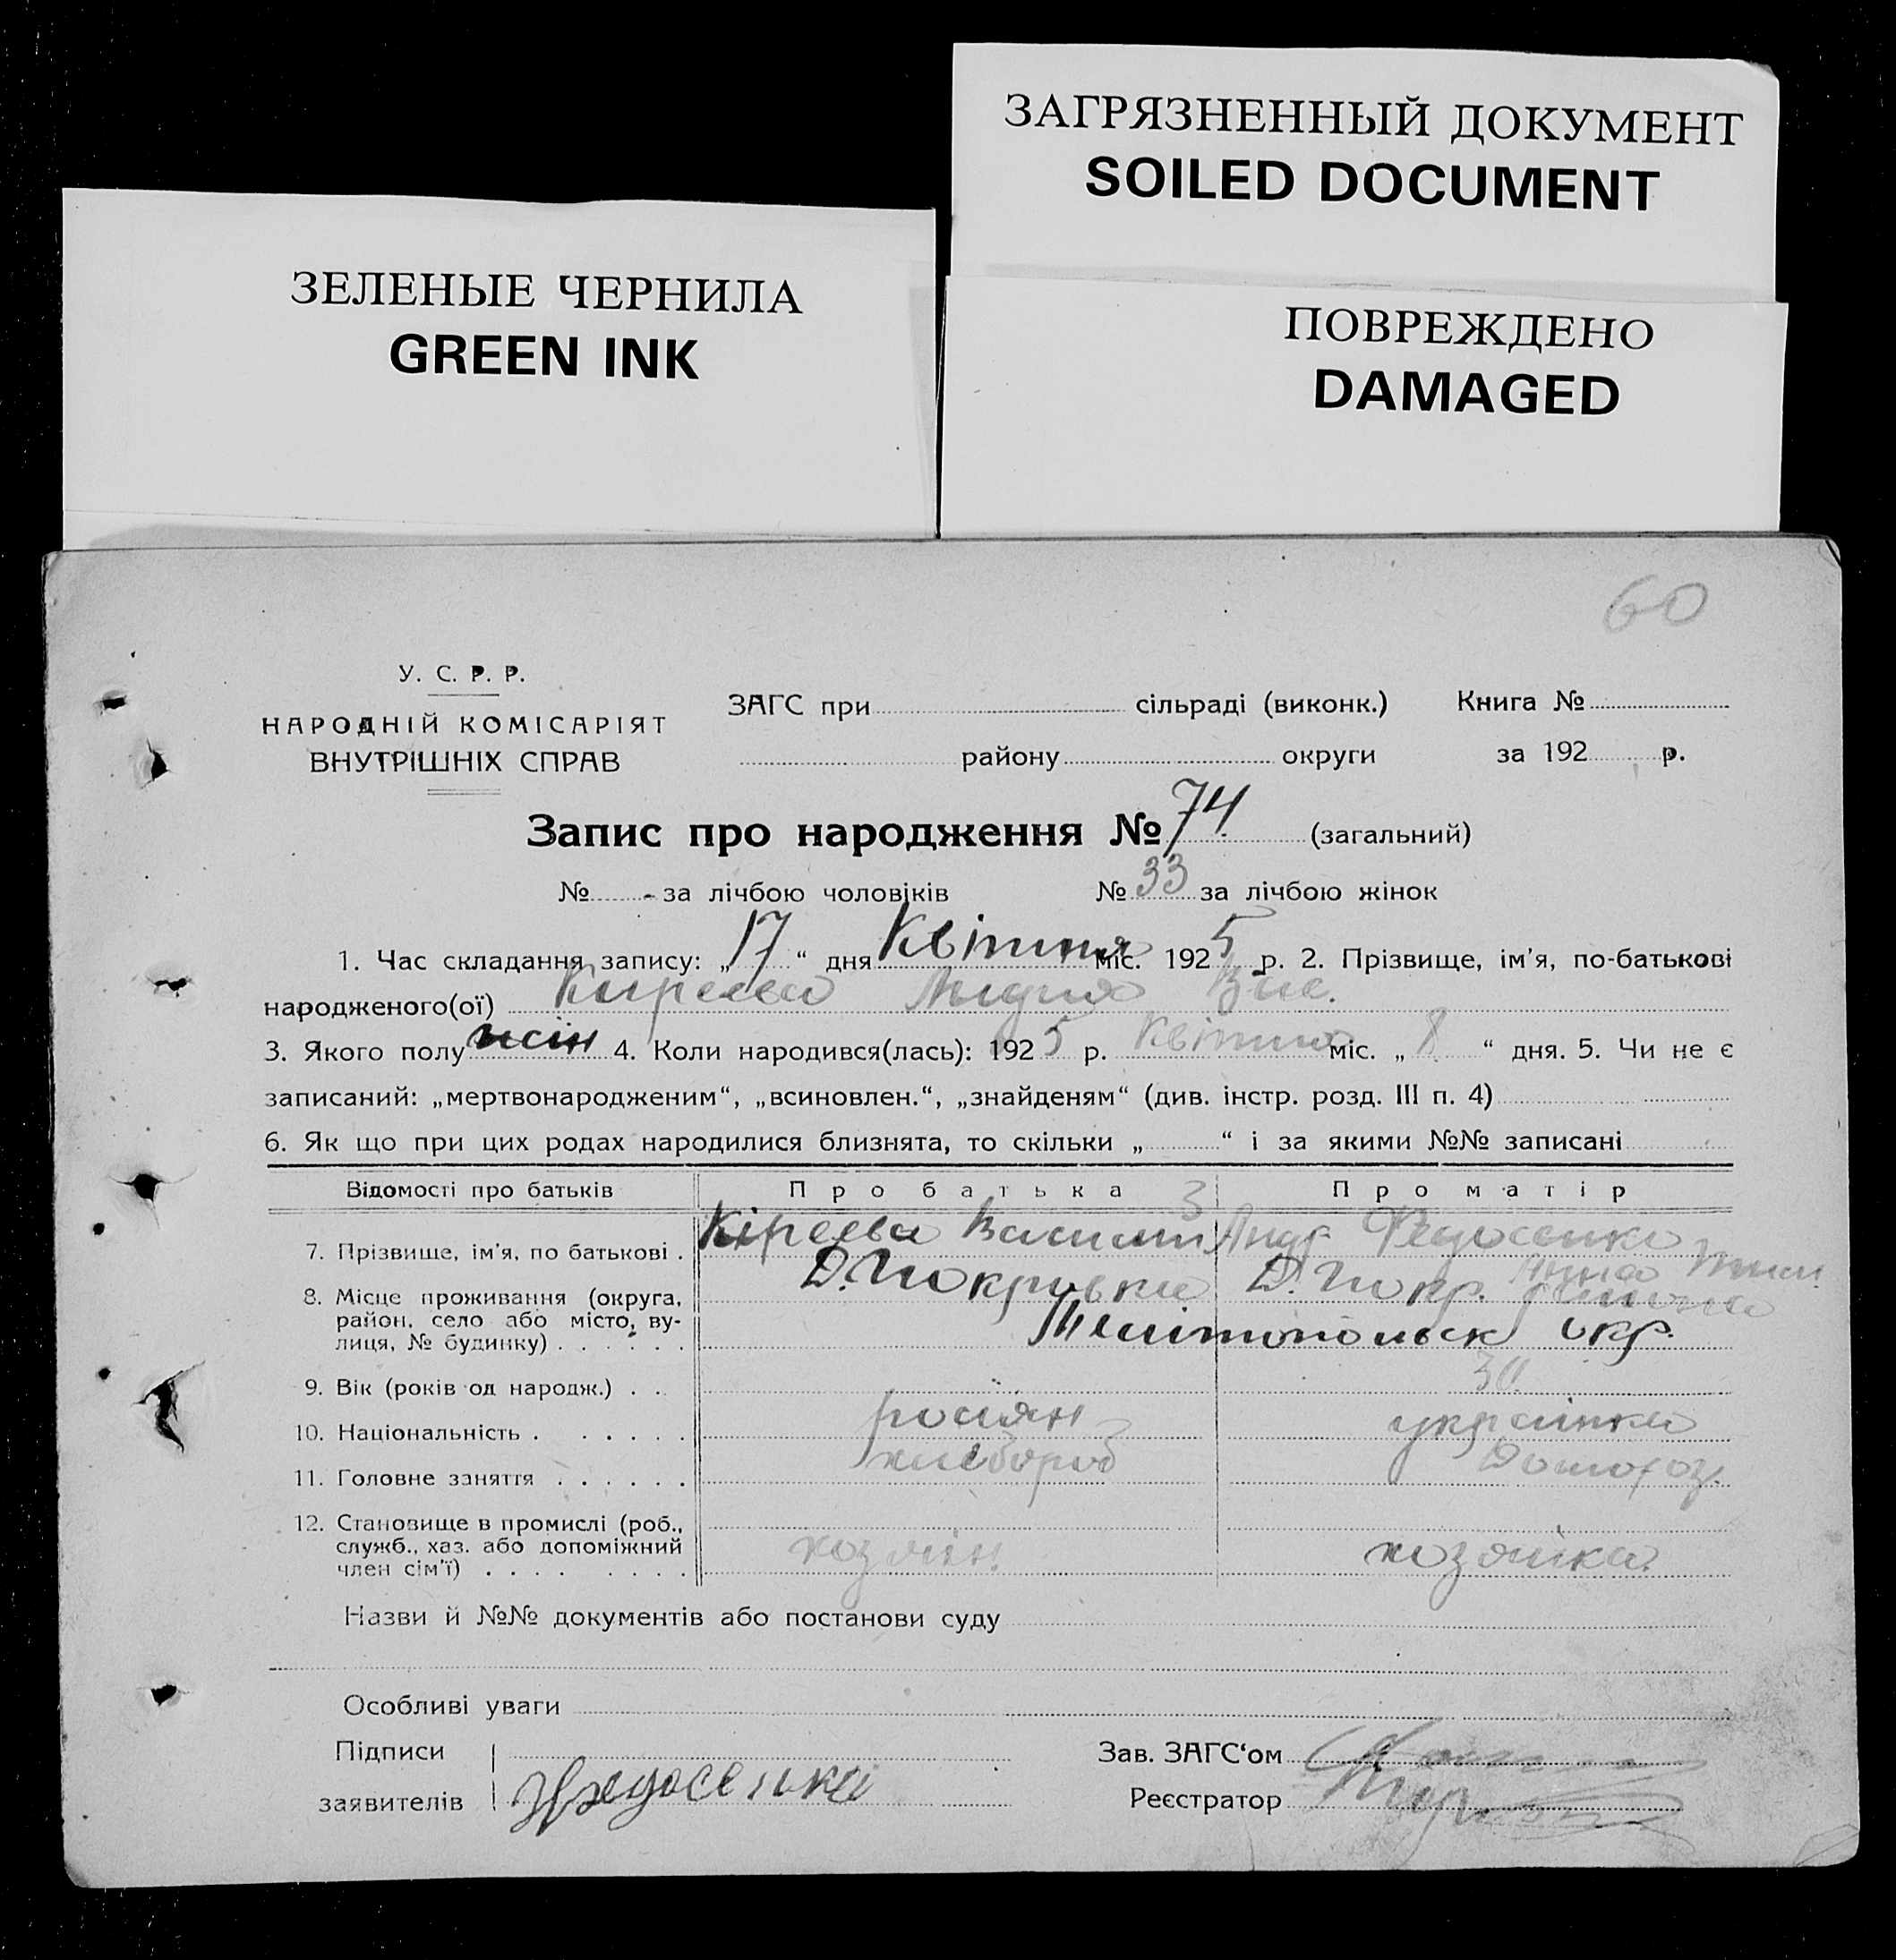 ЗАГРЯЗНЕННЫЙ ДОКУМЕНТ
SOILED DOCUMENT
ЗЕЛЕНЫЕ ЧЕРНИЛА
GREEN INK
ПОВРЕЖДЕНО
DAMAGED
60
У. С. Р. Р.
НАРОДНІЙ КОМІСАРІЯТ
ВНУТРІШНІХ СПРАВ
ЗАГС при сільраді (виконк.) Книга №
району округи за 192 р.
Запис про народження № 74 (загальний)
№ - за лічбою чоловіків № 33 за лічбою жінок
1. Час складання запису: „17“ дня Квітня міс. 1925 р. 2. Прізвище, ім'я, по-батькові
народженого(ої) Кіреева Лидия Вас.
3. Якого полу жін 4. Коли народився(лась): 1925 р. Квітня міс. „8“ дня. 5. Чи не є
записаний: „мертвонародженим“, „всиновлен.“, „знайденям“ (див. інстр. розд. III п. 4)
6. Як що при цих родах народилися близнята, то скільки „ “ і за якими №№ записані
Відомості про батьків Про батька 3 Про матір
7. Прізвище, ім'я, по батькові . Кіреева Василий Андр Федосенко
Анна
8. Місце проживання (округа, Д. Покровка Д. Покр.
район, село або місто, ву-
лиця, № будинку) . . . . . . Мелітопольск окр.
9. Вік (років од народж.) . . 30
10. Національність . . . . . . росіян українка
11. Головне заняття . . . . . . хлібороб Домохоз.
12. Становище в промислі (роб.,
служб., хаз. або допоміжний хозяін хозяйка
член сім'ї) . . . . . . . .
Назви й №№ документів або постанови суду
Особливі уваги
Підписи Зав. ЗАГС‘ом
заявителів Федосенко Реєстратор